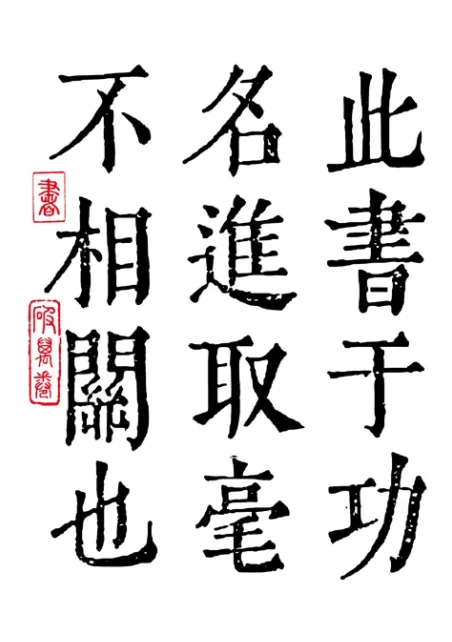 此書于功
名進取毫
不相關也
書
破萬卷